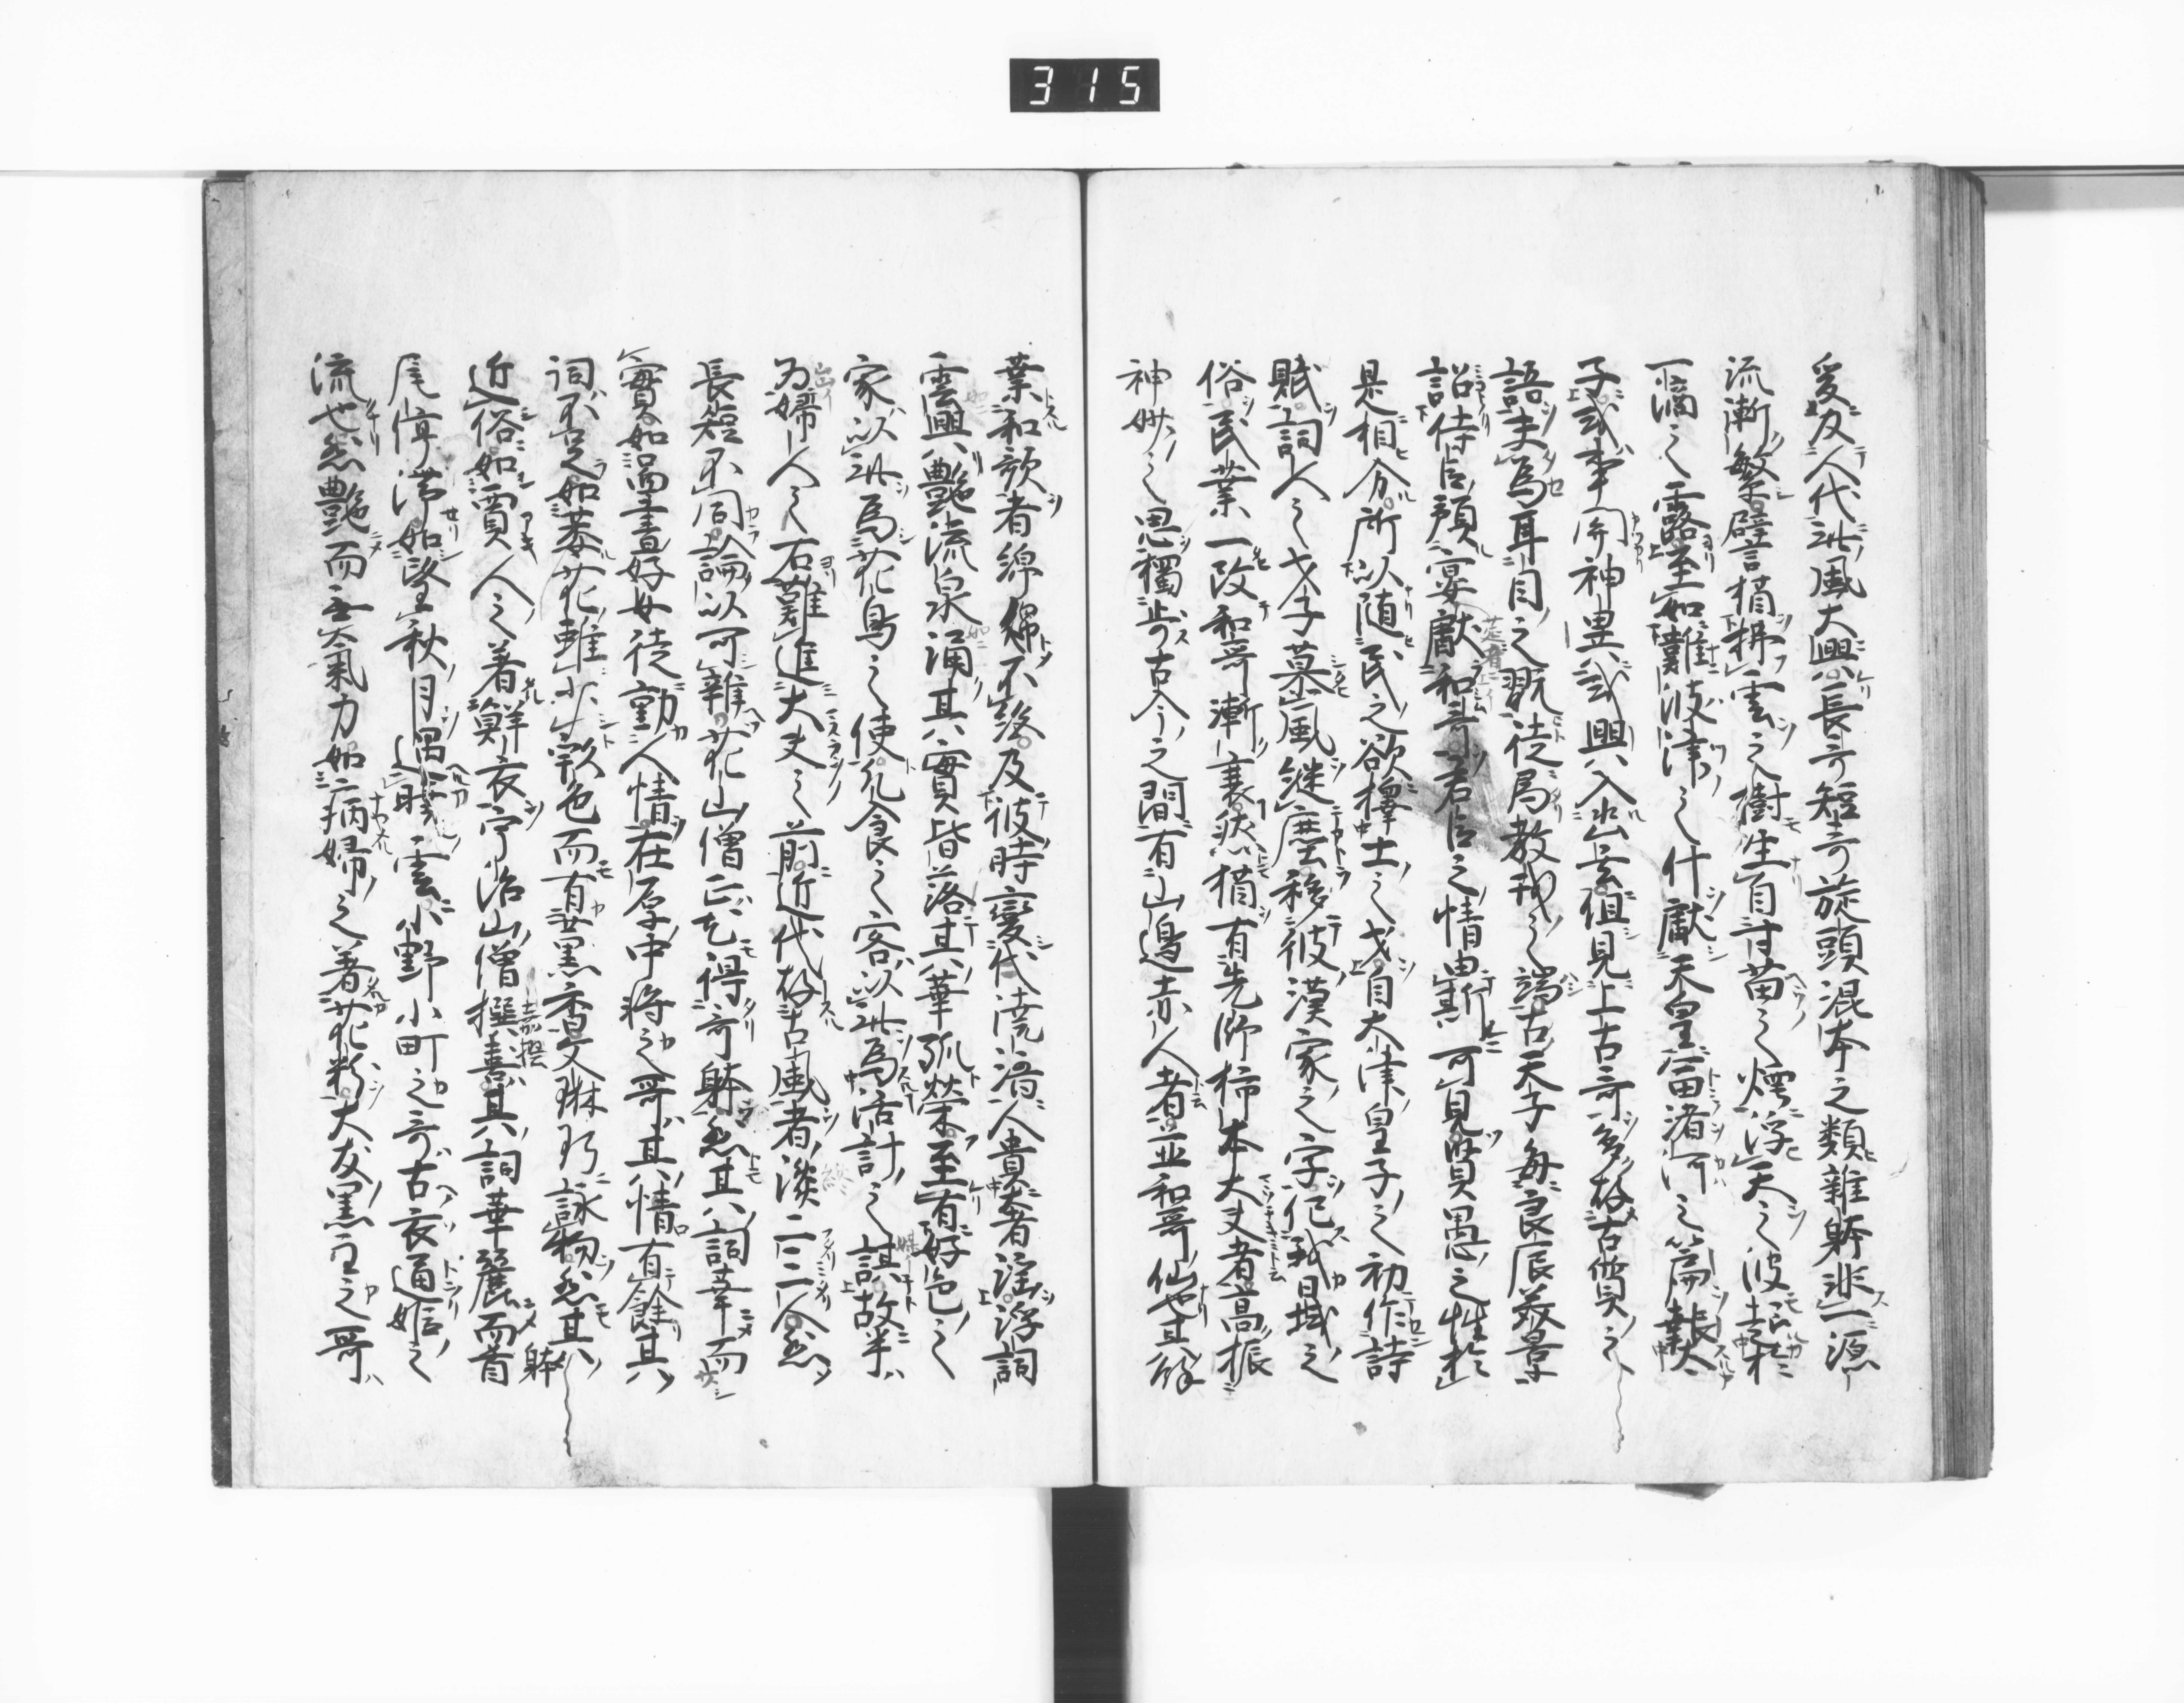 315
爰及人代此風大興長哥短哥旋頭混本之類雜躰非一源
流漸繁譬猶拂雲之樹生自寸苗之煙浮天之波起於
一滴之露至如難波津之什獻天皇富緒河之篇報太
子或事関神異或興入幽玄但見上古哥多存古質之
語未為耳目之翫徒為教戒之端古天子毎良辰美景
詔侍臣預宴獻和哥君臣之情由斯可見賢愚之性於
是相分所以随民之欲擇士之才自大津皇子之初作詩
賦詞人之才子慕風継塵移彼漢家之字化我日域之
俗民業一改和哥漸衰然猶有先師柿本大夫者高振
神妙之思獨歩古今之間有山邊赤人者並和哥仙也其餘
業和歌者綿綿不絶及彼時變代澆漓人貴奢淫浮詞
雲興艶流泉涌其實皆落其華孤榮至有好色之
家以此為花鳥之使乞食之客以此為活計之謀故半
為婦人之右難進大夫之前近代存古風者纔二三人然
長短不同論以可辨花山僧正尤得哥躰然其詞華而
少實如啚畫好女徒動人情在原中将之哥其情有餘其
詞不足如萎花雖少彩色而有薫香文琳巧詠物然其躰
近俗如賈人之着鮮衣宇治山僧撰喜其詞華麗而首
尾停滞如望秋月遇曉雲小野小町之哥古衣通姫之
流也然艶而无氣力如病婦之著花粉大友黒主之哥